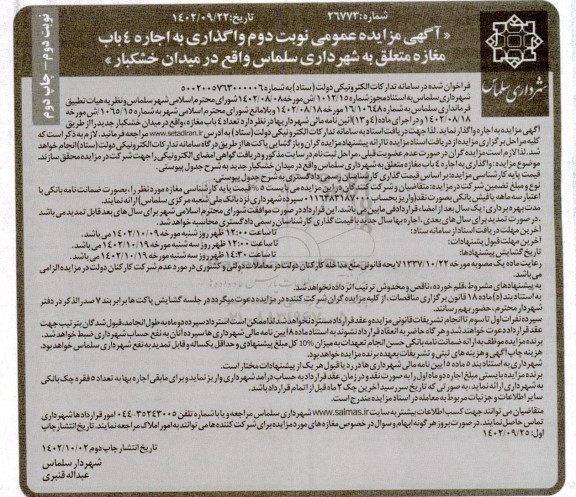 شماره: ۲۶۷۷۳
تاریخ: ۱۴۰۲/۰۹/۲۲
نوبت دوم - چاپ دوم
شهرداری سلماس
« آگهی مزایده عمومی نوبت دوم واگذاری به اجاره ۴ باب
مغازه متعلق به شهرداری سلماس واقع در میدان خشکبار »
فراخوان شده در سامانه تدارکات الکترونیکی دولت (ستاد) به شماره ۵۰۰۲۰۰۵۷۶۳۰۰۰۰۰۶
شهرداری سلماس به استناد مجوز شماره ۱۰۱۲/۱۵/ش مورخه ۱۴۰۲/۰۸/۰۸ شورای محترم اسلامی شهر سلماس و نظریه هیات تطبیق
فرمانداری سلماس به شماره ۱۶/۱۰۶۴۸ مورخه ۱۴۰۲/۰۸/۱۸ و بلامانع شورای محترم اسلامی شهر به شماره ۱۰۶۵/۱۵/ش مورخه
۱۴۰۲/۰۸/۱۸ و اجرای ماده (۴ و ۱۳) آئین نامه مالی شهرداریها در نظر دارد تعداد ۴ باب مغازه، واقع در میدان خشکبار جدید را از طریق
آگهی مزایده به اجاره واگذار نماید. لذا جهت دریافت اسناد به سامانه تدارکات الکترونیکی دولت (ستاد) به آدرس www.setadiran.ir مراجعه فرمائید. لازم به ذکر است که
کلیه مراحل برگزاری مزایده از دریافت اسناد مزایده تا ارائه پیشنهاد مزایده گران و بازگشایی پاکت ها از طریق درگاه سامانه تدارکات الکترونیکی دولت (ستاد) انجام خواهد
شد. لذا لازم است مزایده گران در صورت عدم عضویت قبلی، مراحل ثبت نام در سایت مذکور و دریافت گواهی امضای الکترونیکی را جهت شرکت در مزایده محقق سازند.
موضوع مزایده: واگذاری به اجاره ۴ باب مغازه متعلق به شهرداری سلماس واقع در میدان خشکبار جدید به شرح جدول پیوستی.
قیمت پایه کارشناسی مزایده: بر اساس قیمت گذاری کارشناسان رسمی دادگستری به شرح جدول پیوستی.
نوع و مبلغ تضمین شرکت در مزایده: متقاضیان و شرکت کنندگان در این مزایده می بایست ۵٪ قیمت پایه کارشناسی مغازه مورد نظر را، بصورت ضمانت نامه بانکی با
اعتبار سه ماهه یا فیش بانکی بصورت نقد (واریز بحساب ۰۱۱۶۳۸۳۱۸۷۰۰۰ سپرده شهرداری نزد بانک ملی شعبه مرکزی سلماس) ارائه نمایند.
مدت بهره برداری: یک سال بعد از امضاء قرارداد فی مابین می باشد. این قرارداد در صورت موافقت شورای محترم اسلامی شهر برای سال های بعد قابل تمدید می باشد
. در صورت تمدید برای سال های بعدی، اجاره بها سال جدید با قیمت گذاری کارشناسان رسمی دادگستری محاسبه خواهد شد.
آخرین مهلت دریافت اسناد از سامانه ستاد: تا ساعت ۱۲:۰۰ ظهر روز شنبه مورخه ۱۴۰۲/۱۰/۰۹ می باشد.
آخرین مهلت قبول پیشنهادات: تا ساعت ۱۲:۰۰ ظهر روز سه شنبه مورخه ۱۴۰۲/۱۰/۱۹ می باشد.
تاریخ گشایش پیشنهادها: تا ساعت ۱۴:۳۰ ظهر روز سه شنبه مورخه ۱۴۰۲/۱۰/۱۹ می باشد.
رعایت ماده یک مصوبه مورخه ۱۳۳۷/۱۰/۲۲ لایحه قانونی منع مداخله کارکنان دولت در معاملات دولتی و کشوری در مورد عدم شرکت کارکنان دولت در مزایده الزامی
می باشد.
به پیشنهادهای مشروط، قلم خورده، ناقص و مخدوش ترتیب اثر داده نخواهد شد.
به استناد بند (د) ماده ۱۸ قانون برگزاری مناقصات، از کلیه مزایده گران شرکت کننده در مزایده دعوت میگردد در جلسه گشایش پاکت ها برابر بند ۷ صدر الذکر در دفتر
شهردار محترم، حضور بهم رسانند.
سپرده نفرات اول تا سوم تا انجام تشریفات قانونی مزایده و عقد قرارداد مسترد نخواهد شد. لذا ممکن است استرداد سپرده دو ماه به طول انجامد. قبول شدگان بترتیب جهت
عقد قرارداد دعوت خواهند شد و هر گاه حاضر به انعقاد قرارداد نشوند به استناد ماده ۸ آیین نامه مالی شهرداری ها سپرده آنان به نفع حساب شهرداری ضبط خواهد شد.
برنده مزایده موظف به ارائه ضمانت نامه بانکی حسن انجام تعهدات به میزان 10% کل مبلغ پیشنهادی و حداقل یکساله و قابل تمدید به نفع شهرداری سلماس خواهد بود.
هزینه چاپ آگهی و هزینه های ثبتی و تشریفات بعهده برنده مزایده خواهد بود.
شهرداری به استناد بند ۵ ماده ۵ آیین نامه مالی شهرداری ها در رد یا قبول هر یک از پیشنهادات مختار است.
برنده مزایده بایستی مبلغ اجاره دو ماهه اول را به صورت نقد و در زمان عقد قرارداد به حساب درآمد شهرداری واریز نماید و برای مابقی اجاره بها به تعداد ۵ فقره چک بانکی
به شهرداری ارائه نماید. به صورتی که تاریخ سررسید آخرین چک ۲ ماه قبل از اتمام قرارداد باشد.
سایر اطلاعات و جزئیات مربوط به معامله در اسناد مزایده مندرج است.
متقاضیان می توانند جهت کسب اطلاعات بیشتر به سایت www.salmas.ir شهرداری سلماس مراجعه و یا با شماره تلفن ۰۴۴-۳۵۲۴۳۰۰۵ امور قراردادها شهرداری
تماس حاصل نمایند. در صورت بروز هر گونه ابهام و سوال در خصوص مغازه های مورد مزایده برای شرکت کننده ها می توانند به امور املاک مراجعه نمایند. تاریخ انتشار چاپ
اول: ۱۴۰۲/۰۹/۲۵
تاریخ انتشار چاپ دوم ۱۴۰۲/۱۰/۰۲
شهردار سلماس
عبداله قنبری